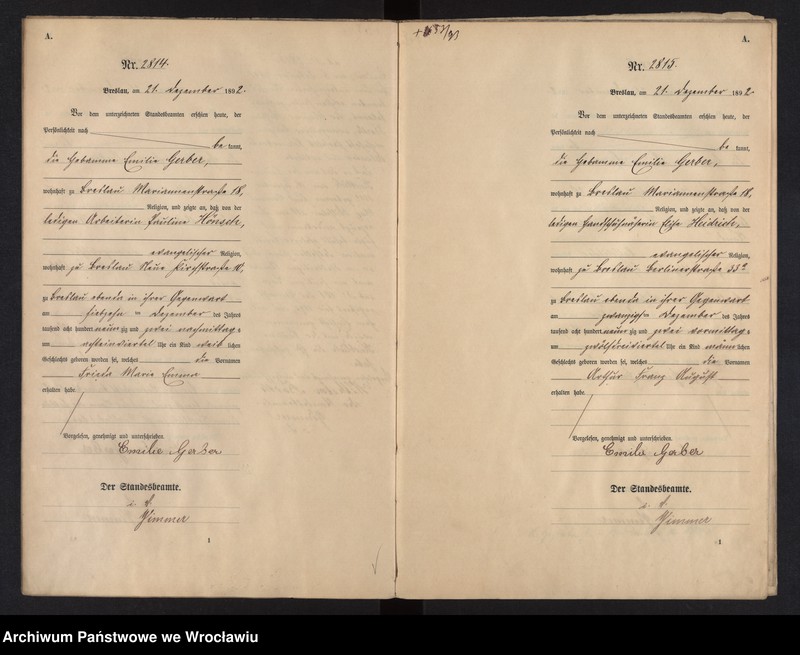 A.
Nr. 2814.
Breslau, am 21. Dezember 1892.
Vor dem unterzeichneten Standesbeamten erschien heute, der
Persönlichkeit nach
be kannt,
die Hebamme Emilie Gerber,
wohnhaft zu Breslau Mariannenstraße 18,
Religion, und zeigte an, daß von der
ledigen Arbeiterin Pauline Hönsch,
evangelischer Religion,
wohnhaft zu Breslau Neue Kirchstraße 10,
zu Breslau ebenda in ihrer Gegenwart
am siebzehn Dezember des Jahres
tausend acht hundert neun zig und zwei nachmittags
um achteinviertel Uhr ein Kind weib lichen
Geschlechts geboren worden sei, welches die Vornamen
Frieda Marie Emma
erhalten habe.
Vorgelesen, genehmigt und unterschrieben.
Emilie Gerber
Der Standesbeamte.
Zimmer
1
A.
Nr. 2815.
Breslau, am 21. Dezember 1892.
Vor dem unterzeichneten Standesbeamten erschien heute, der
Persönlichkeit nach
be kannt,
die Hebamme Emilie Gerber,
wohnhaft zu Breslau Mariannenstraße 18,
Religion, und zeigte an, daß von der
ledigen Handschuhnäherin Elise
evangelischer Religion,
wohnhaft zu Breslau Berlinerstraße
zu Breslau ebenda in ihrer Gegenwart
am zwanzig Dezember des Jahres
tausend acht hundert neun zig und zwei vormittags
um zwölfdreiviertel Uhr ein Kind männ lichen
Geschlechts geboren worden sei, welches die Vornamen
Arthur Franz August
erhalten habe.
Vorgelesen, genehmigt und unterschrieben.
Emilie Gerber
Der Standesbeamte.
Zimmer
1
Archiwum Państwowe we Wrocławiu